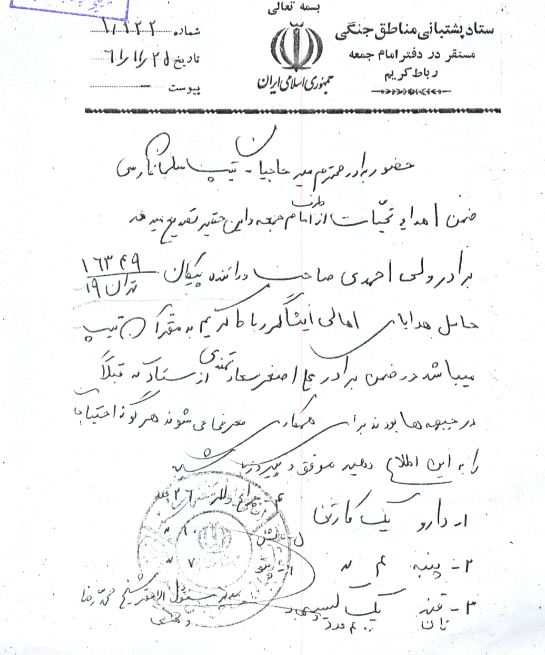 بسمه تعالی
ستاد پشتیبانی مناطق جنگی
مستقر در دفتر امام جمعه
رباط کریم
جمهوری اسلامی ایران
شماره ۱/۱۲۲
تاریخ ۶۱/۱۱/۲۵
پیوست
حضور برادر محترم میرحاجیان - تیپ سلمان فارسی
ضمن اهداء تحیات از طرف امام جمعه و این حقیر تصدیع میدهد
برادر ولی احمدی صاحب و راننده پیکان ۱۶۳۴۹ تهران ۱۹
حامل هدایای اهالی ایثارگر رباط کریم به مقر آن تیپ
میباشد در ضمن برادر اصغر سعادتمندی از ستاد که قبلاً
در جبهه ها بودند برای همکاری معرفی می شوند هرگونه احتیاجات
را به این اطلاع دهید موفق و پیروز باشید
۱- دارو یک کارتن
۲- پنبه ۴
۳- قند یک کیسه
نان
پتو ۷
مسئول شیخ محمدرضا